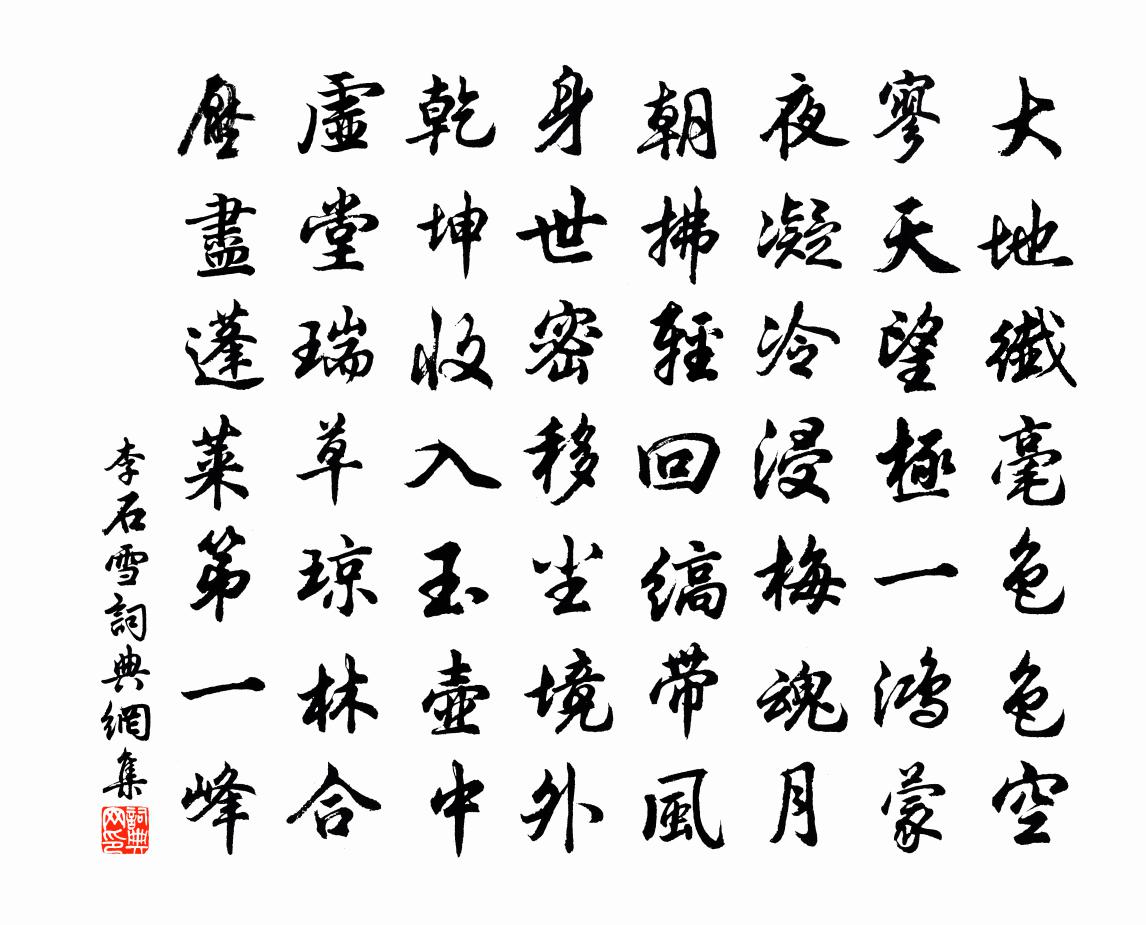 大地纖毫色色空
寥天望極一鴻蒙
夜凝冷浸梅魂月
朝拂輕回縞帶風
身世密移塵境外
乾坤收入玉壺中
虛堂瑞草琼林合
壓盡蓬萊第一峰
李石雪詞典網集
詞典网印